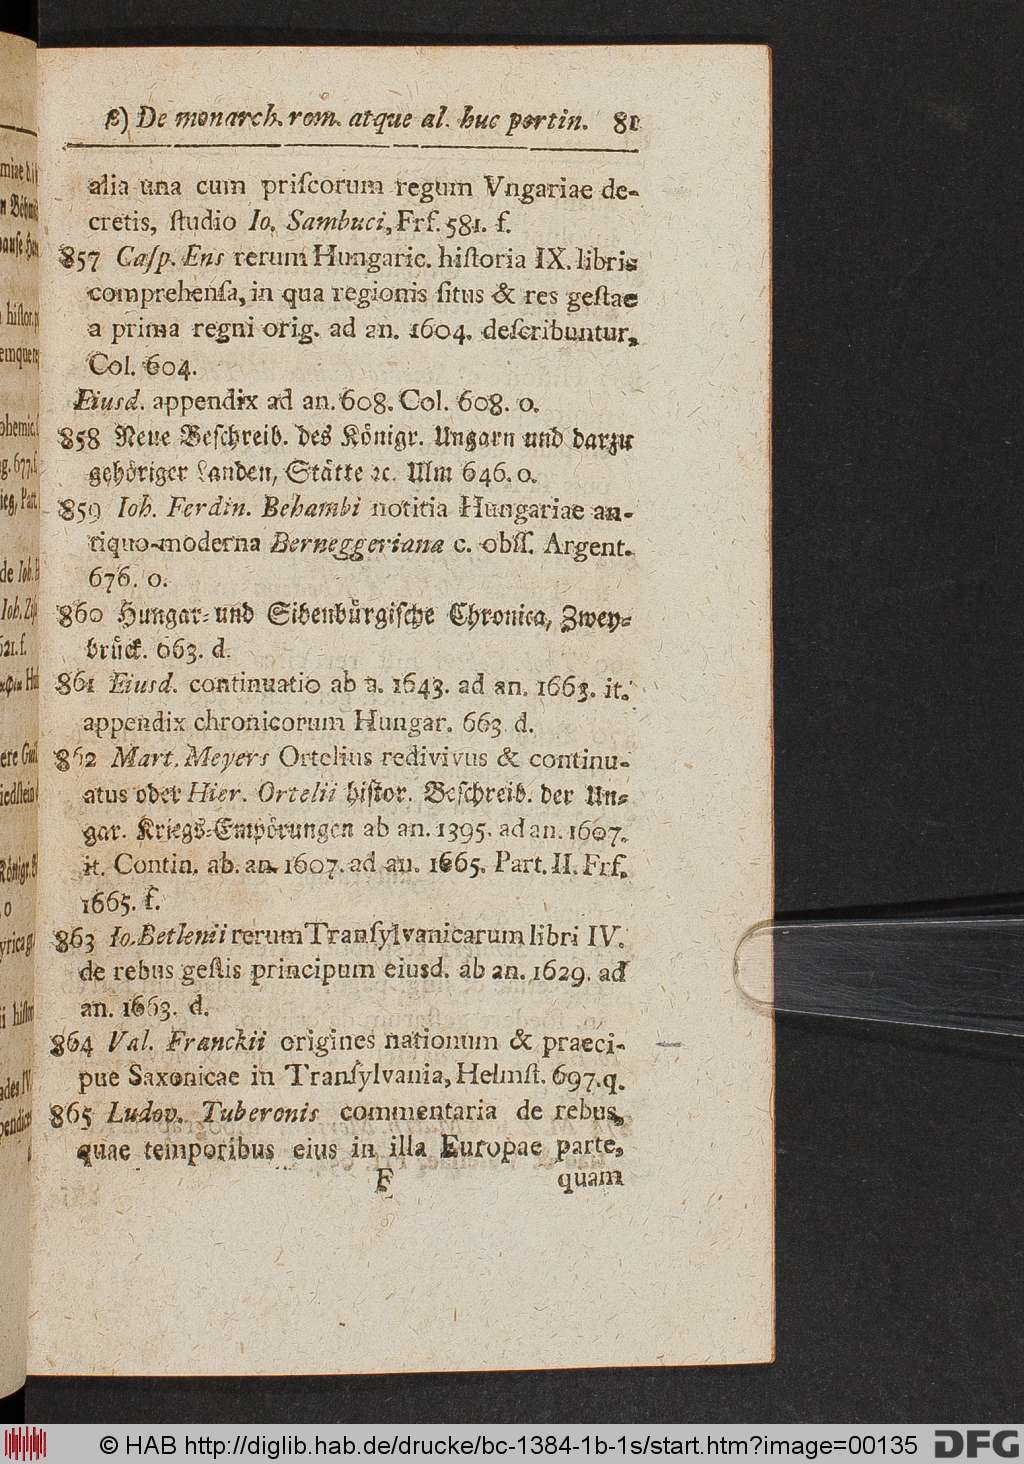 ϐ) De monarch. rom. atque al. huc pertin. 81
alia una cum priſcorum regum Vngariae de-
cretis, ſtudio Io. Sambuci, Frf. 581. f.
857 Caſp. Ens rerum Hungaric. hiſtoria IX. libris
comprehenſa, in qua regionis ſitus & res geſtae
a prima regni orig. ad an. 1604. deſcribuntur,
Col. 604.
Eiusd. appendix ad an. 608. Col. 608. o.
858 Neue Beſchreib. des Königr. Ungarn und darzu
gehöriger Landen, Stätte ꝛc. Ulm 646. o.
859 Ioh. Ferdin. Behambi notitia Hungariae an-
tiquo-moderna Berneggeriana c. obſſ. Argent.
676. o.
860 Hungar- und Sibenbürgiſche Chronica, Zwey-
brück. 663. d.
861 Eiusd. continuatio ab a. 1643. ad an. 1663. it.
appendix chronicorum Hungar. 663. d.
862 Mart. Meyers Ortelius redivivus & continu-
atus oder Hier. Ortelii hiſtor. Beſchreib. der Un-
gar. Kriegs-Empörungen ab an. 1395. ad an. 1607.
it. Contin. ab. an. 1607. ad an. 1665. Part. II. Frf.
1665. f.
863 Io. Betlenii rerum Tranſylvanicarum libri IV.
de rebus geſtis principum eiusd. ab an. 1629. ad
an. 1663. d.
864 Val. Franckii origines nationum & praeci-
pue Saxonicae in Tranſylvania, Helmſt. 697. q.
865 Ludov. Tuberonis commentaria de rebus,
quae temporibus eius in illa Europae parte,
F quam
© HAB http://diglib.hab.de/drucke/bc-1384-1b-1s/start.htm?image=00135 DFG